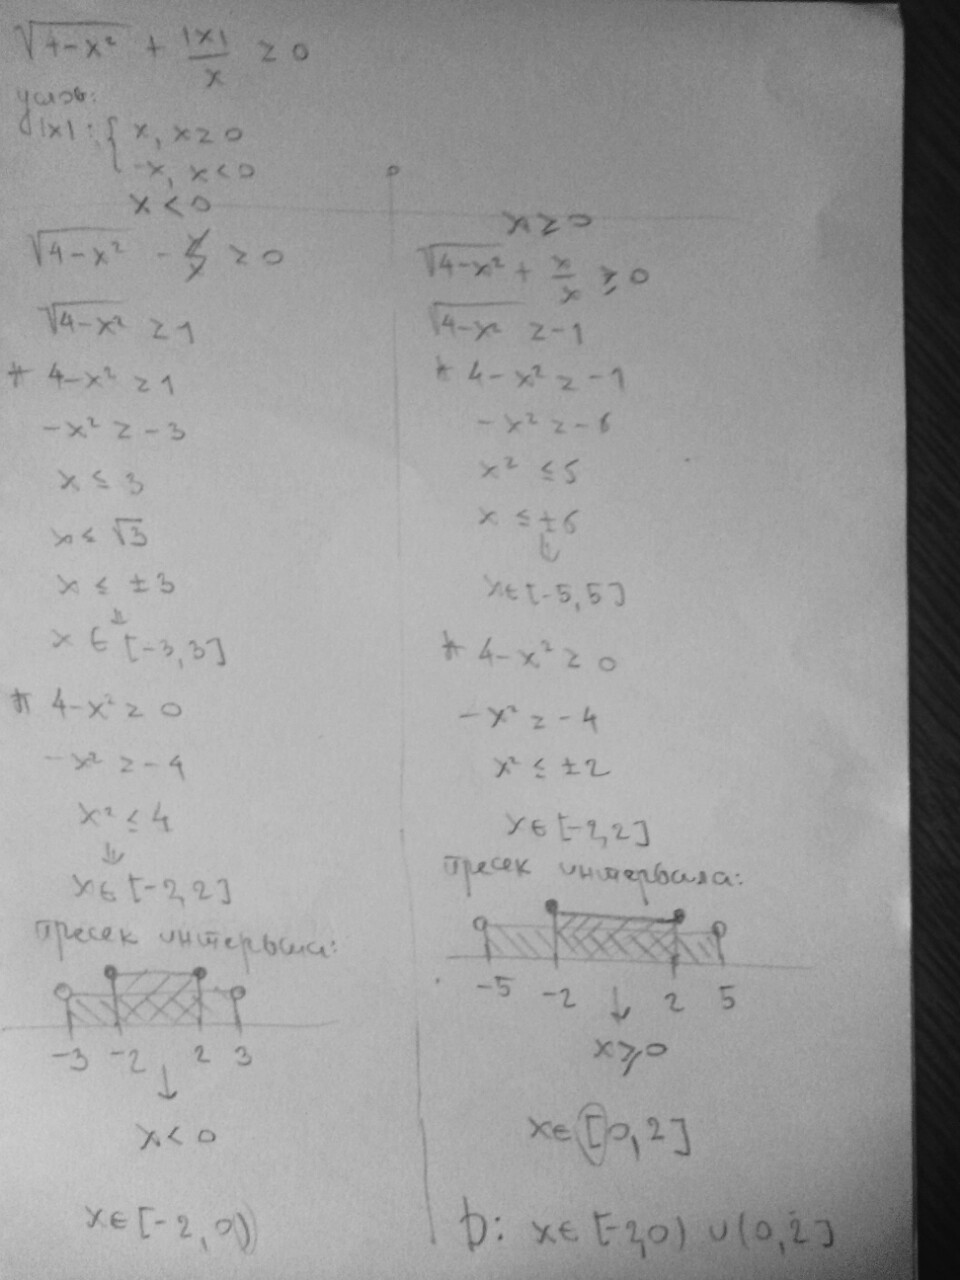 √4-x² + |x|/x ≥ 0
услов:
|x| : { x, x ≥ 0
-x, x < 0
x < 0
√4-x² - x/x ≥ 0
√4-x² ≥ 1
* 4-x² ≥ 1
-x² ≥ -3
x ≤ 3
x ≤ √3
x ≤ ±3
x ∈ [-3,3]
* 4-x² ≥ 0
-x² ≥ -4
x² ≤ 4
x ∈ [-2,2]
пресек интервала:
-3 -2 2 3
x < 0
x ∈ [-2, 0)
x ≥ 0
√4-x² + x/x ≥ 0
√4-x² ≥ -1
* 4-x² ≥ -1
-x² ≥ -5
x² ≤ 5
x ≤ ±5
x ∈ [-5,5]
* 4-x² ≥ 0
-x² ≥ -4
x² ≤ ±2
x ∈ [-2,2]
пресек интервала:
-5 -2 2 5
x ≥ 0
x ∈ [0,2]
D: x ∈ [-2,0) ∪ (0,2]